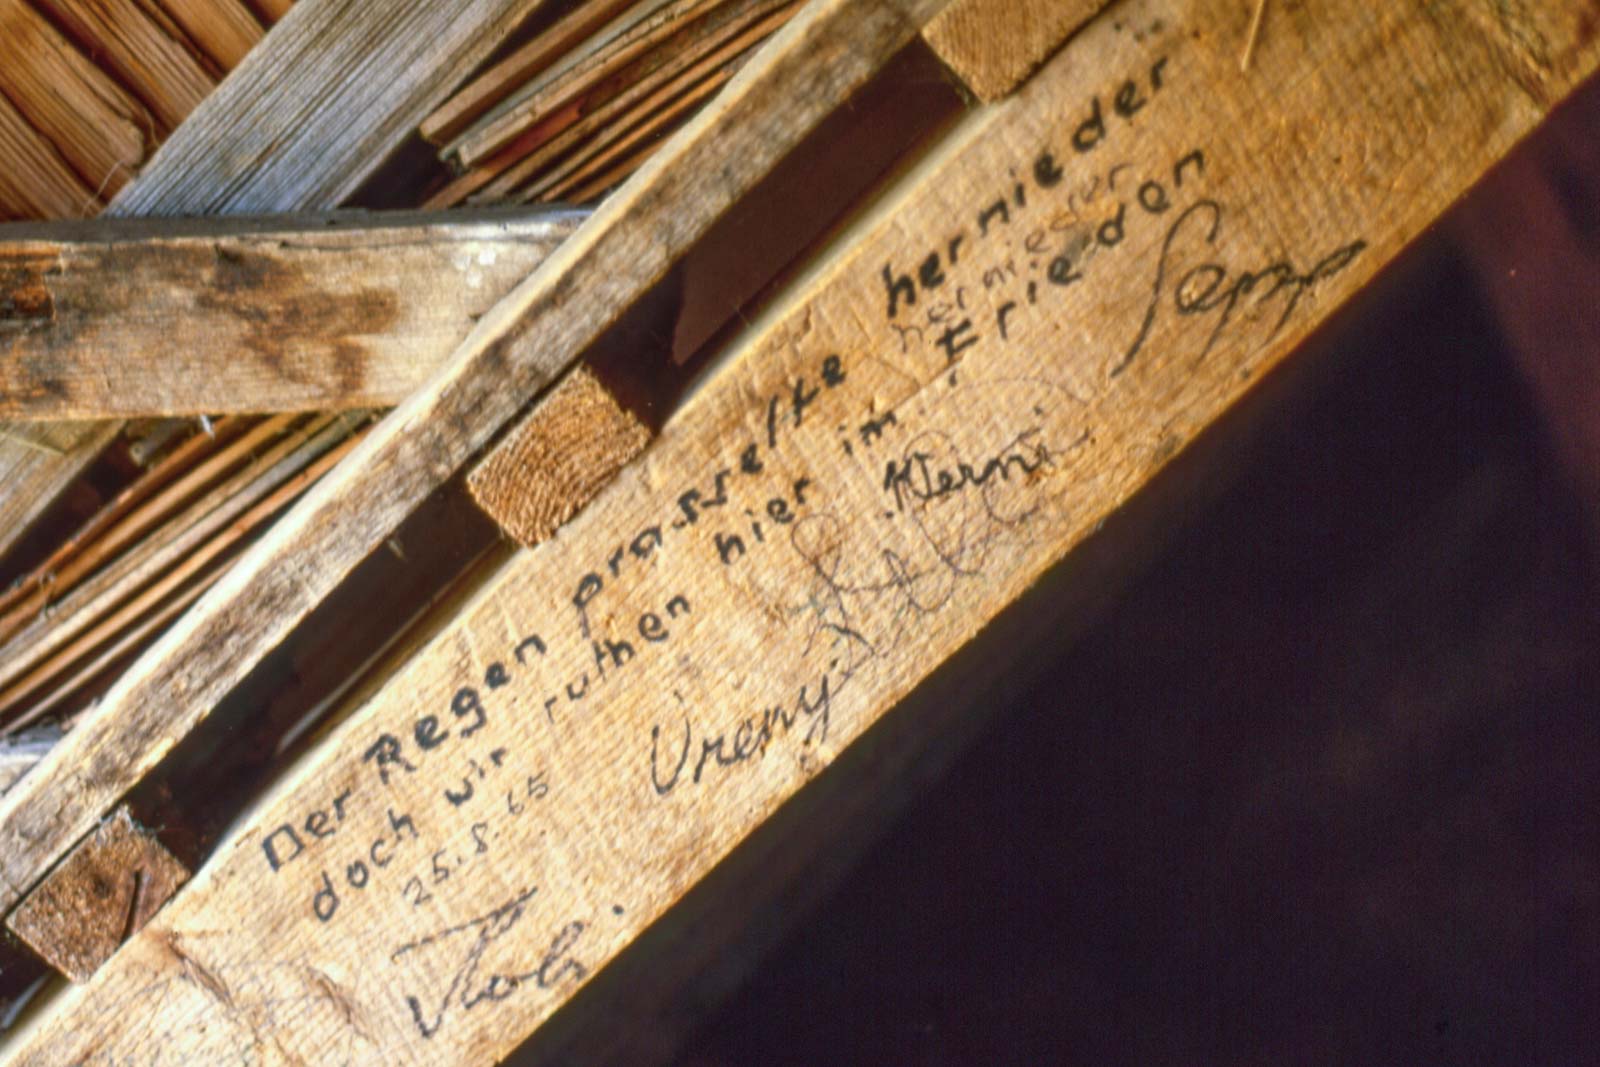 Der Regen prasselte hernieder
hernieder
doch wir ruthen hier im Frieden
25.8.65
Vreny
Werni
Sepp